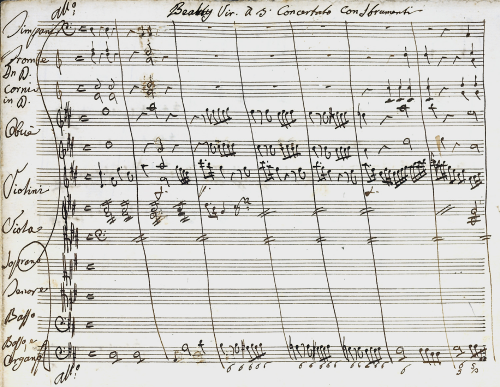 All:o Beatus Vir. a 3: Concertato Con Strumenti
Timpani
Trombe
In D.
Corni
in D.
Oboè
Violini
Viola
Soprano
Tenore
Basso
Basso e
Organo
All:o
6 6 6 6 6
6